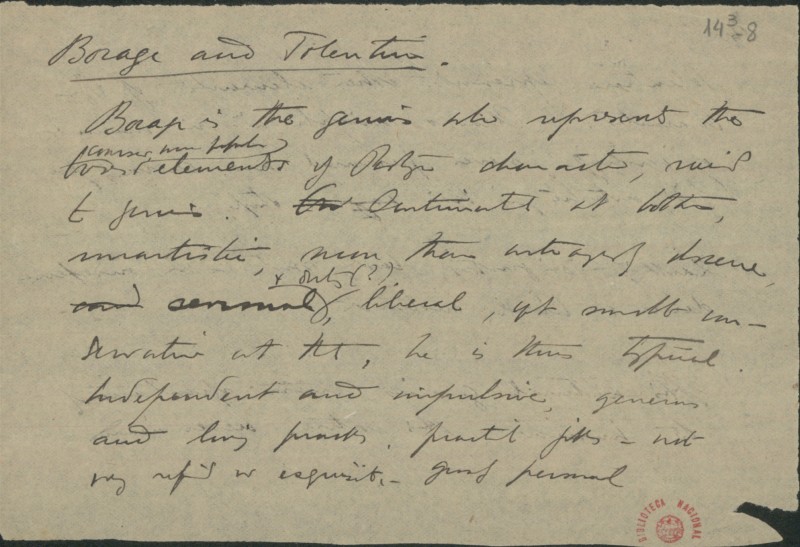 14³-8
Bocage and Tolentino.
Bocage is the genius who represents the
coarser, more popular
elements of character, raised
to genius. Continually at bottom,
inartistic, more than outrageously obscene,
& dirty (?)
and sensual, liberal, yet small con-
servative at that, he is thus typical.
Independent and impulsive, generous
and loving pranks, practical jokes — not
very refined or exquisite, — good personal
BIBLIOTECA NACIONAL